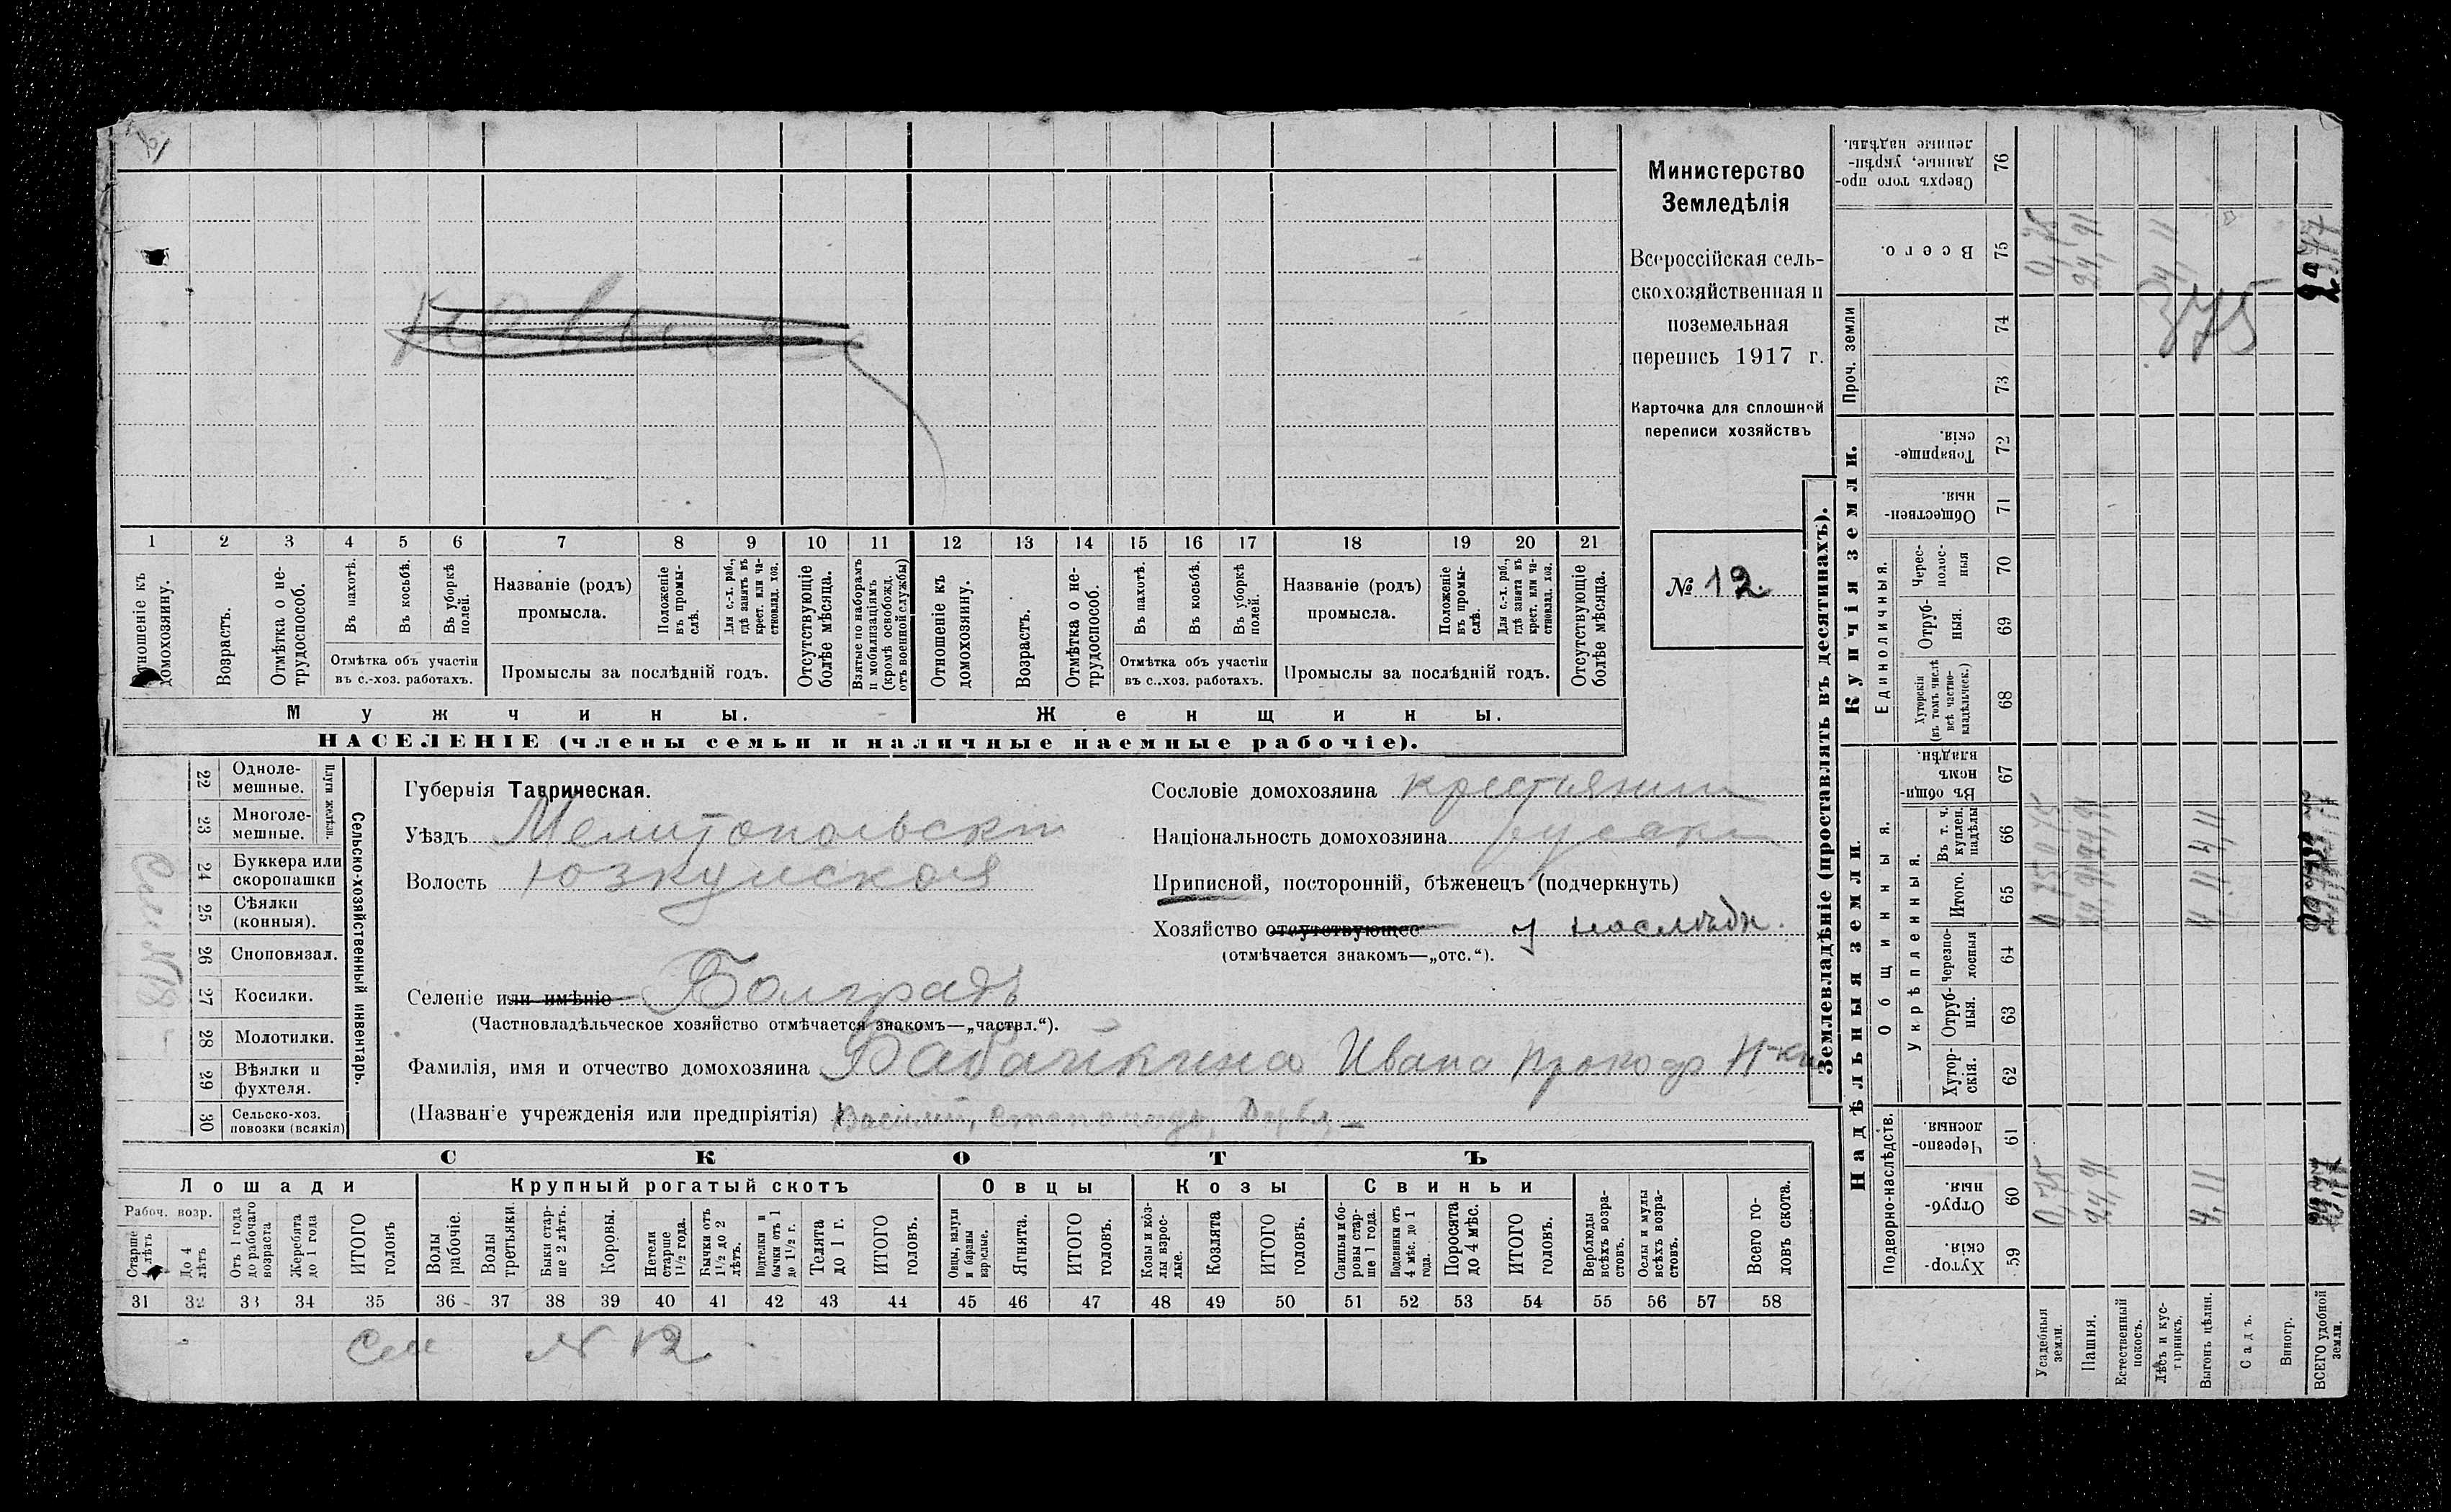 Министерство
Земледѣлія
Всероссійская сель-
скохозяйственная и
поземельная
перепись 1917 г.
Карточка для сплошной
переписи хозяйствъ
№ 12
1 2 3 4 5 6 7 8 9 10 11 12 13 14 15 16 17 18 19 20 21
Отношеніе къ домохозяину.
Возрастъ.
Отмѣтка о не-трудоспособ.
Въ пахотѣ.
Въ косьбѣ.
Въ уборкѣ полей.
Отмѣтка объ участіи
въ с.-хоз. работахъ.
Названіе (родъ)
промысла.
Положеніе въ промы-слѣ.
Для с.-х. раб., гдѣ занятъ въ крест. или ча-стновлад. хоз.
Промыслы за послѣдній годъ.
Отсутствующіе болѣе мѣсяца.
Взятые по наборамъ и мобилизаціямъ (кромѣ освобожд. отъ военной службы)
Отношеніе къ домохозяину.
Возрастъ.
Отмѣтка о не-трудоспособ.
Въ пахотѣ.
Въ косьбѣ.
Въ уборкѣ полей.
Отмѣтка объ участіи
въ с..хоз. работахъ.
Названіе (родъ)
промысла.
Положеніе въ промы-слѣ.
Для с.-х. раб., гдѣ занята въ крест. или ча-стновлад. хоз.
Промыслы за послѣдній годъ.
Отсутствующіе болѣе мѣсяца.
Мужчины.
Женщины.
НАСЕЛЕНІЕ (члены семьи и наличные наемные рабочіе).
Сельско-хозяйственный инвентарь.
Плуги желѣзн.
22 Одноле-мешные.
23 Многоле-мешные.
24 Буккера или скоропашки
25 Сѣялки (конныя).
26 Сноповязал.
27 Косилки.
28 Молотилки.
29 Вѣялки и фухтеля.
30 Сельско-хоз. повозки (всякія)
Губернія Таврическая.
Уѣздъ Мелитопольскій
Волость Юзкуйская
Селеніе или имѣніе Болградъ
(Частновладѣльческое хозяйство отмѣчается знакомъ—„частвл.“).
Фамилія, имя и отчество домохозяина Бабайкина Ивана Прокоф Н-ки
(Названіе учрежденія или предпріятія) Василий, Степанида,
Сословіе домохозяина крестьянин
Національность домохозяина русский
Приписной, посторонній, бѣженецъ (подчеркнуть)
Хозяйство отсутствующее у наслѣдн.
(отмѣчается знакомъ—„отс.“).
СКОТЪ
Лошади
Крупный рогатый скотъ
Овцы
Козы
Свиньи
Рабоч. возр.
Старше 4 лѣтъ
До 4 лѣтъ
Отъ 1 года до рабочаго возраста
Жеребята до 1 года
ИТОГО головъ
Волы рабочіе.
Волы третьяки.
Быки стар-ше 2 лѣтъ.
Коровы.
Нетели старше 1½ года.
Бычки отъ 1½ до 2 лѣтъ.
Подтелки и бычки отъ 1 до 1½ г.
Телята до 1 г.
ИТОГО головъ.
Овцы, валухи и бараны взрослые.
Ягнята.
ИТОГО головъ.
Козы и коз-лы взрос-лые.
Козлята
ИТОГО головъ.
Свиньи и бо-ровы стар-ше 1 года.
Подсвинки отъ 4 мѣс. до 1 года.
Поросята до 4 мѣс.
ИТОГО головъ.
Верблюды всѣхъ возра-стовъ.
Ослы и мулы всѣхъ возра-стовъ.
Всего го-ловъ скота.
31 32 33 34 35 36 37 38 39 40 41 42 43 44 45 46 47 48 49 50 51 52 53 54 55 56 57 58
См N 12
Землевладѣніе (проставлять въ десятинахъ).
Надѣльныя земли.
Купчія земли.
Подворно-наслѣдств.
Общинныя.
Укрѣпленныя.
Единоличныя.
Проч. земли
Хутор-скія. 59
Отруб-ныя. 60
Черезпо-лосныя. 61
Хутор-скія. 62
Отруб-ныя. 63
Черезпо-лосныя 64
Итого. 65
Въ т. ч. куплен. надѣлы 66
Въ общи-номъ владѣн. 67
Хуторскія (въ томъ числѣ всѣ частно-владѣльческ.) 68
Отруб-ныя. 69
Черес-полос-ныя 70
Обществен-ныя. 71
Товарище-скія. 72
73
74
Всего. 75
Сверхъ того про-данные, укрѣп-ленные надѣлы. 76
Усадебныя земли.
0,75
Пашня.
24,91
Естественный покосъ.
Лѣсъ и кус-тарникъ.
Выгонъ цѣлин.
4,11
Садъ.
Виногр.
ВСЕГО удобной земли.
375